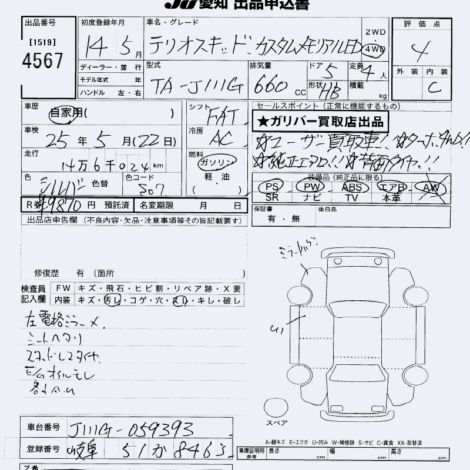 JU愛知 出品申込書
出品番号 初度登録年月 車名・グレード 評価点
[1519] 14年5月 テリオスキッド カスタムメモリアルED 2WD 4WD 4
4567 ディーラー・並行 型式 排気量 ドア 定員 外装 内装
モデル年式 年 TA-J111G 660cc 5 4人 C
ハンドル 左・右 形状 HB 積載 kg
車歴 シフト セールスポイント(正常に機能するもの)
自家用( ) FAT ★ガリバー買取店出品
車検 冷房 ☆ユーザー買取車!!
25年5月(22日) AC
走行 燃料
14万6千024km ガソリン
色 シルバー 色替 色コード S07 軽・油 装備品(純正品に限る)
( ) PS PW ABS エアB AW
R券 ¥9870円 預託済 自動車税 月 日 SR ナビ TV 本革
出品店申告欄(不良内容・欠品・注意事項等その旨記載要す) 保証書 後日品
有・無
修復歴 有( )箇所
検査員記入欄 FW キズ・飛石・ヒビ割・リペア跡・X要
内装 キズ・汚レ・コゲ・穴・スレ・キレ・破レ
左電格ミラーメ
シートヘタリ
スタッドレスタイヤ
E/Gオイルモレ
スペア
車台番号 J111G-059393 A-線キズ E-エクボ U-凹み W-補修跡 S-サビ C-腐食 XX-交換済
登録番号 岐阜 51か8463 長さ cm 幅 cm 高さ cm